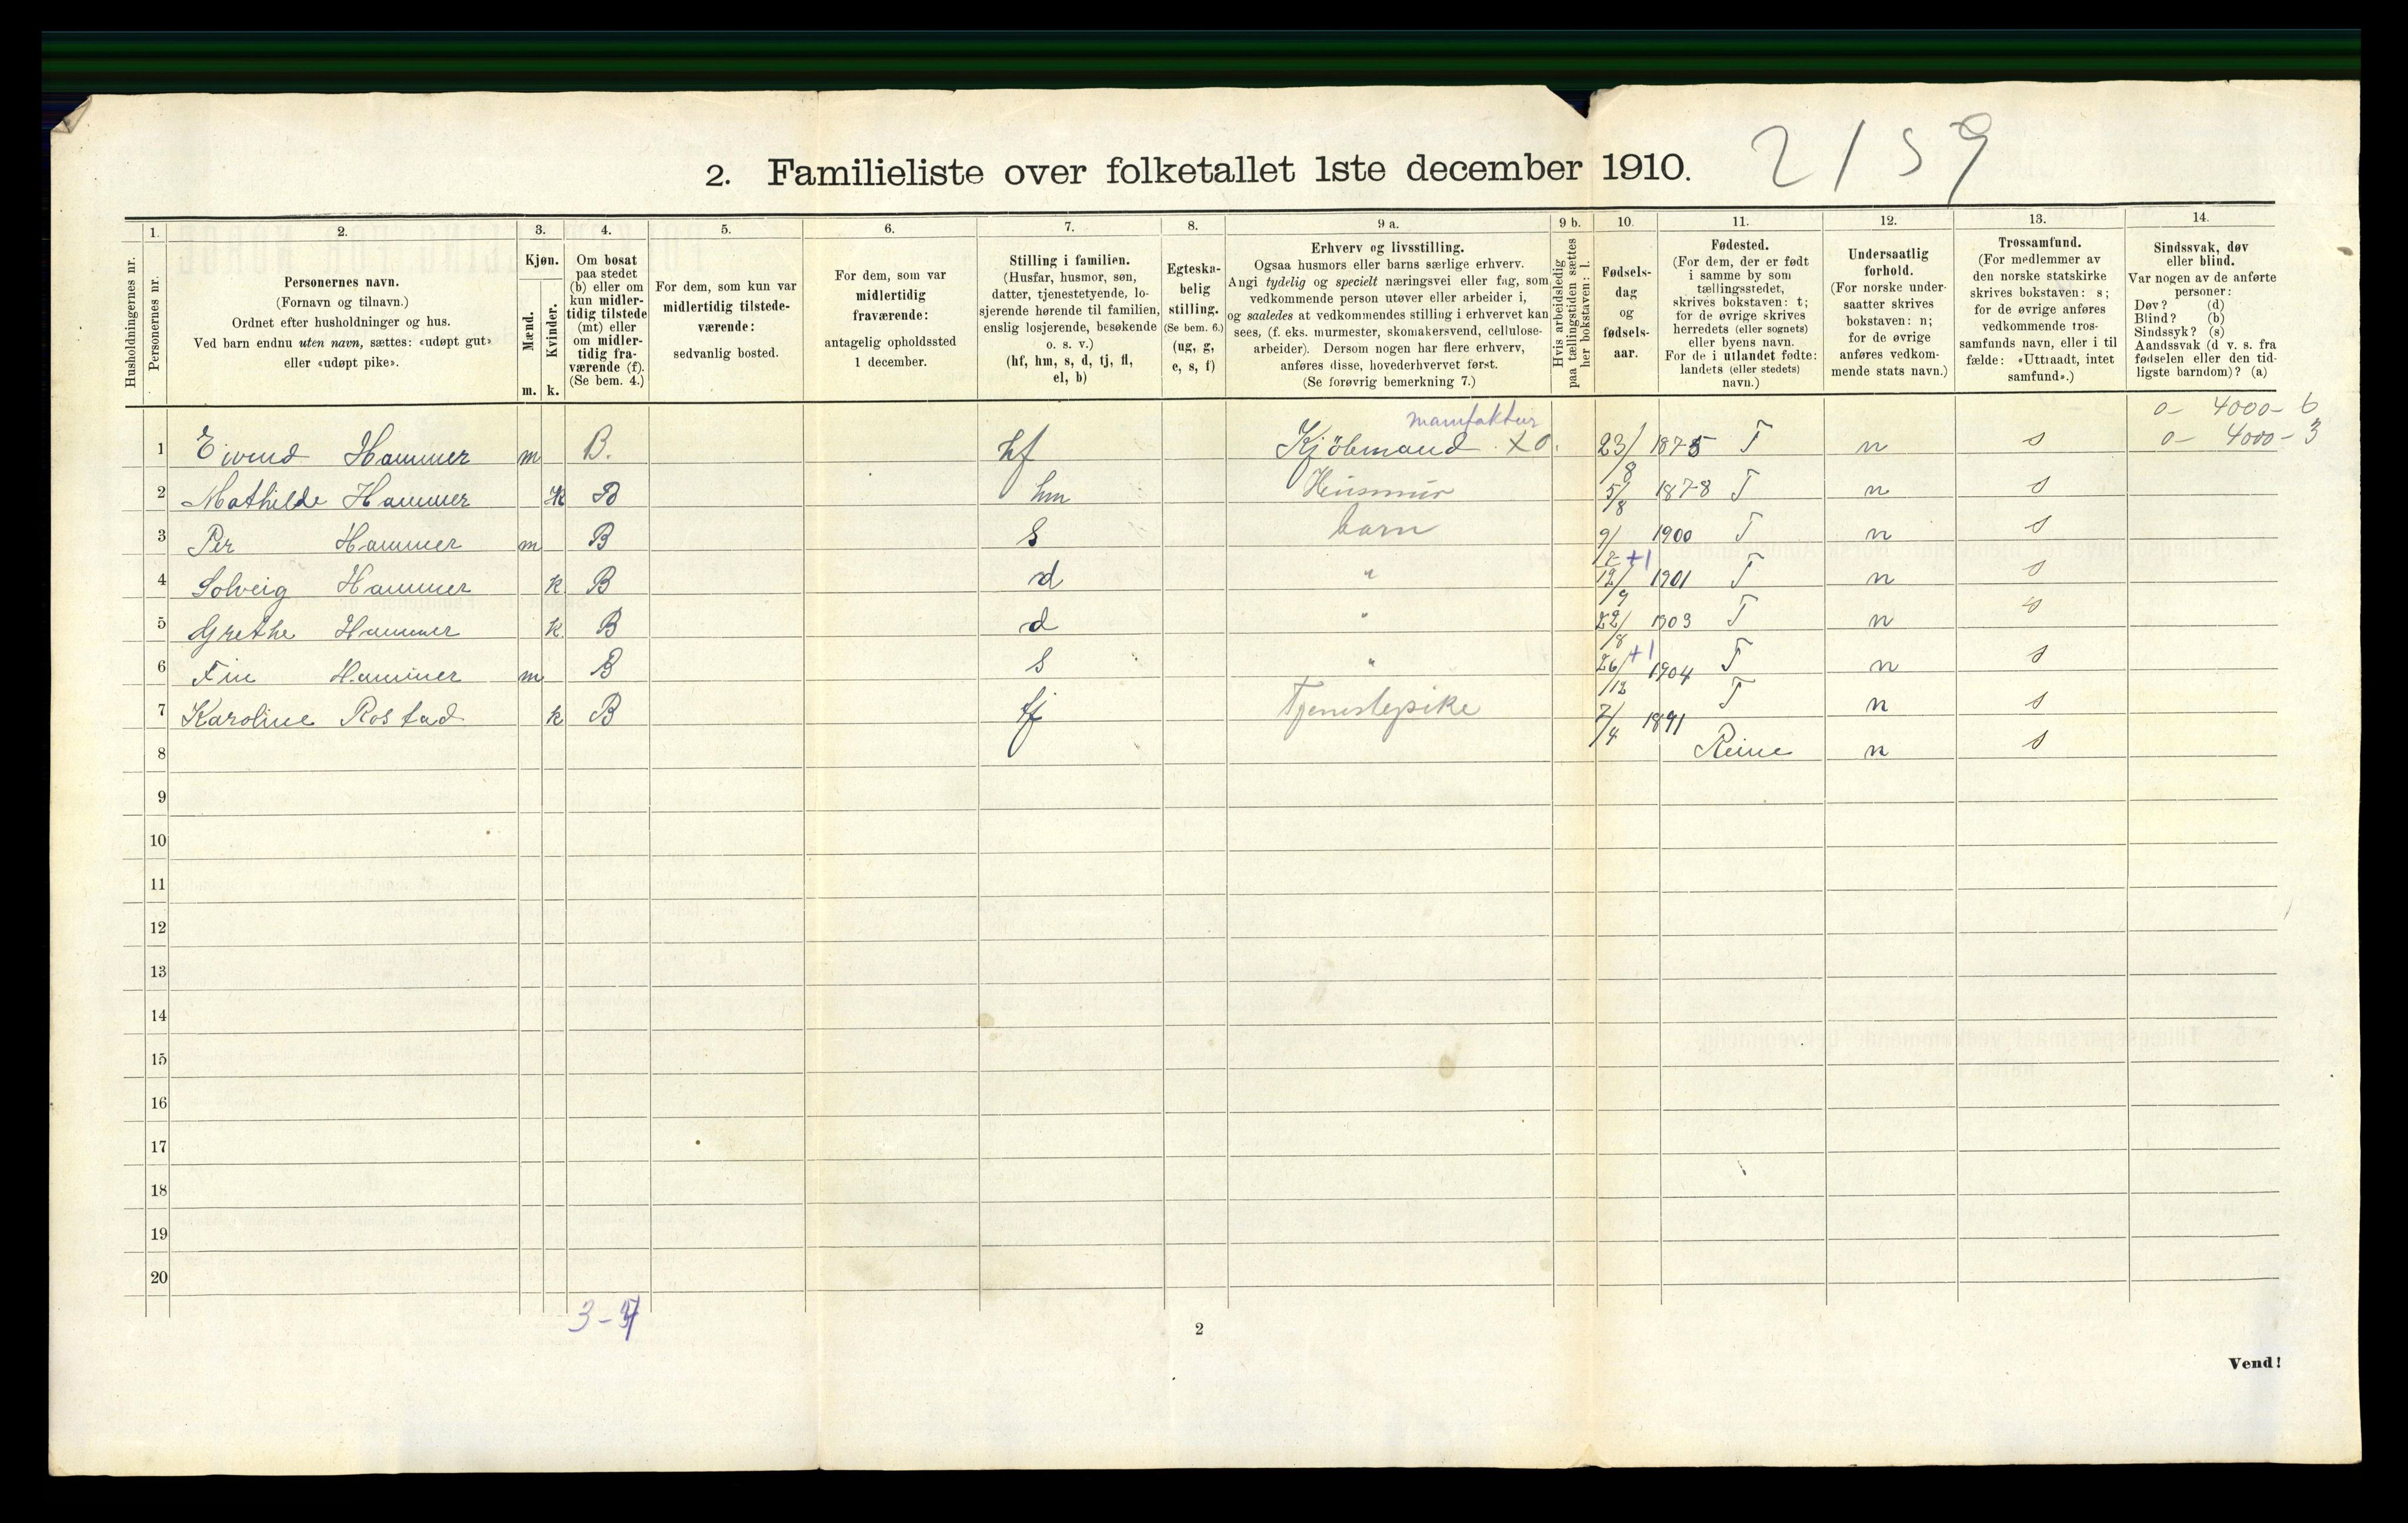 2. Familieliste over folketallet 1ste december 1910. 2159
1. 2. 3. 4. 5. 6. 7. 8. 9 a. 9 b. 10. 11. 12. 13. 14.
Husholdningernes nr.
Personernes nr.
Personernes navn.
(Fornavn og tilnavn.)
Ordnet efter husholdninger og hus.
Ved barn endnu uten navn, sættes: «udøpt gut»
eller «udøpt pike».
Kjøn.
Mænd.
Kvinder.
m. k.
Om bosat
paa stedet
(b) eller om
kun midler-
tidig tilstede
(mt) eller
om midler-
tidig fra-
værende (f).
(Se bem. 4.)
For dem, som kun var
midlertidig tilstede-
værende:
sedvanlig bosted.
For dem, som var
midlertidig
fraværende:
antagelig opholdssted
1 december.
Stilling i familien.
(Husfar, husmor, søn,
datter, tjenestetyende, lo-
sjerende hørende til familien,
enslig losjerende, besøkende
o. s. v.)
(hf, hm, s, d, tj, fl,
el, b)
Egteska-
belig
stilling.
(Se bem. 6.)
(ug, g,
e, s, f)
Erhverv og livsstilling.
Ogsaa husmors eller barns særlige erhverv.
Angi tydelig og specielt næringsvei eller fag, som
vedkommende person utøver eller arbeider i,
og saaledes at vedkommendes stilling i erhvervet kan
sees, (f. eks. murmester, skomakersvend, cellulose-
arbeider). Dersom nogen har flere erhverv,
anføres disse, hovederhvervet først.
(Se forøvrig bemerkning 7.)
Hvis arbeidsledig
paa tællingstiden sættes
her bokstaven: l.
Fødsels-
dag
og
fødsels-
aar.
Fødested.
(For dem, der er født
i samme by som
tællingsstedet,
skrives bokstaven: t;
for de øvrige skrives
herredets (eller sognets)
eller byens navn.
For de i utlandet fødte:
landets (eller stedets)
navn.)
Undersaatlig
forhold.
(For norske under-
saatter skrives
bokstaven: n;
for de øvrige
anføres vedkom-
mende stats navn.)
Trossamfund.
(For medlemmer av
den norske statskirke
skrives bokstaven: s;
for de øvrige anføres
vedkommende tros-
samfunds navn, eller i til
fælde: «Uttraadt, intet
samfund».)
Sindssvak, døv
eller blind.
Var nogen av de anførte
personer:
Døv? (d)
Blind? (b)
Sindssyk? (s)
Aandssvak (d v. s. fra
fødselen eller den tid-
ligste barndom)? (a)
manufaktur 0- 4000- 6
1 Eivind Hammer m B. hf Kjöbmand XO. 23/8 1875 T n s 0- 4000- 3
2 Mathilde Hammer k B hm Husmor 5/8 1878 T n s
3 Per Hammer m B s barn 9/ 1900 T n s
+1
4 Solveig Hammer k B d " 12/9 1901 T n s
5 Grethe Hammer k B d " 22/8 1903 T n s
+1
6 Fin Hammer m B s " 26/12 1904 T n s
7 Karoline Rostad k B tj Tjenestepike 7/4 1891 T n s
8 Reine n s
9
10
11
12
13
14
15
16
17
18
19
20
3-4
2
Vend!